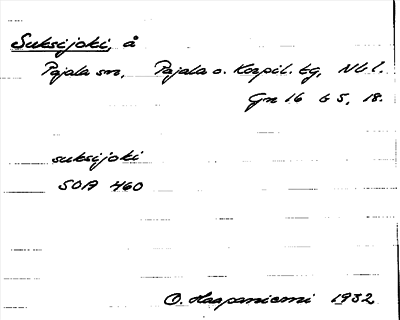 Suksijoki, å
Pajala sn, Pajala o. Korpil. tg, Nbl.
Gn 16 b 5, 18.
suksijoki
SOA 460
O. Haapaniemi 1932